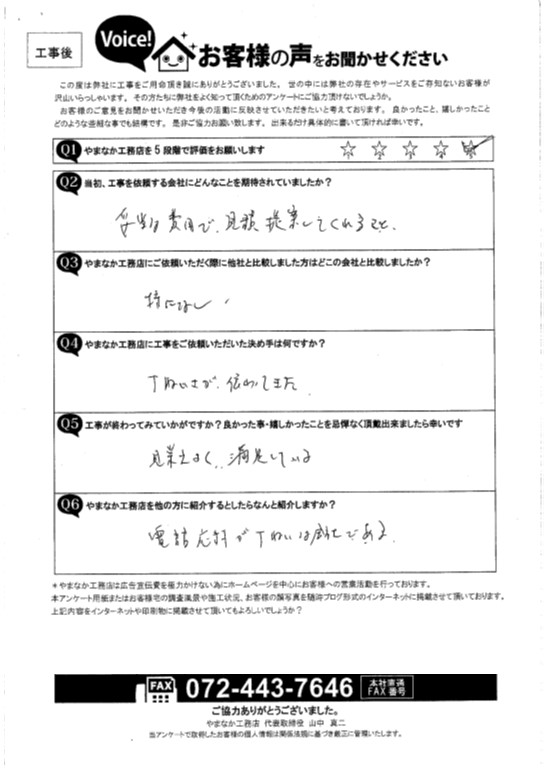 工事後
Voice!
お客様の声をお聞かせください
この度は弊社に工事をご用命頂き誠にありがとうございました。世の中には弊社の存在やサービスをご存知ないお客様が
沢山いらっしゃいます。その方たちに弊社をよく知って頂くためのアンケートにご協力頂けないでしょうか。
お客様のご意見をお聞かせいただき今後の活動に反映させていただきたいと考えております。良かったこと、嬉しかったこと
どのような些細な事でも結構です。是非ご協力お願い致します。出来るだけ具体的に書いて頂ければ幸いです。
Q1 やまなか工務店を5段階で評価をお願いします ☆ ☆ ☆ ☆ ☆
Q2 当初、工事を依頼する会社にどんなことを期待されていましたか?
妥当な費用で、見積提案してくれること、
Q3 やまなか工務店にご依頼いただく際に他社と比較しました方はどこの会社と比較しましたか?
特になし
Q4 やまなか工務店に工事をご依頼いただいた決め手は何ですか?
丁ねいさが、伝わってきた
Q5 工事が終わってみていかがですか?良かった事・嬉しかったことを忌憚なく頂戴出来ましたら幸いです
見栄えよく、満足している
Q6 やまなか工務店を他の方に紹介するとしたらなんと紹介しますか?
電話応対が丁ねいな会社である。
*やまなか工務店は広告宣伝費を極力かけない為にホームページを中心にお客様への営業活動を行っております。
本アンケート用紙またはお客様宅の調査風景や施工状況、お客様の顔写真を随時ブログ形式のインターネットに掲載させて頂いております。
上記内容をインターネットや印刷物に掲載させて頂いてもよろしいでしょうか?
FAX 072-443-7646 本社直通 FAX番号
ご協力ありがとうございました。
やまなか工務店 代表取締役 山中 真二
当アンケートで取得したお客様の個人情報は関係法規に基づき厳正に管理いたします。